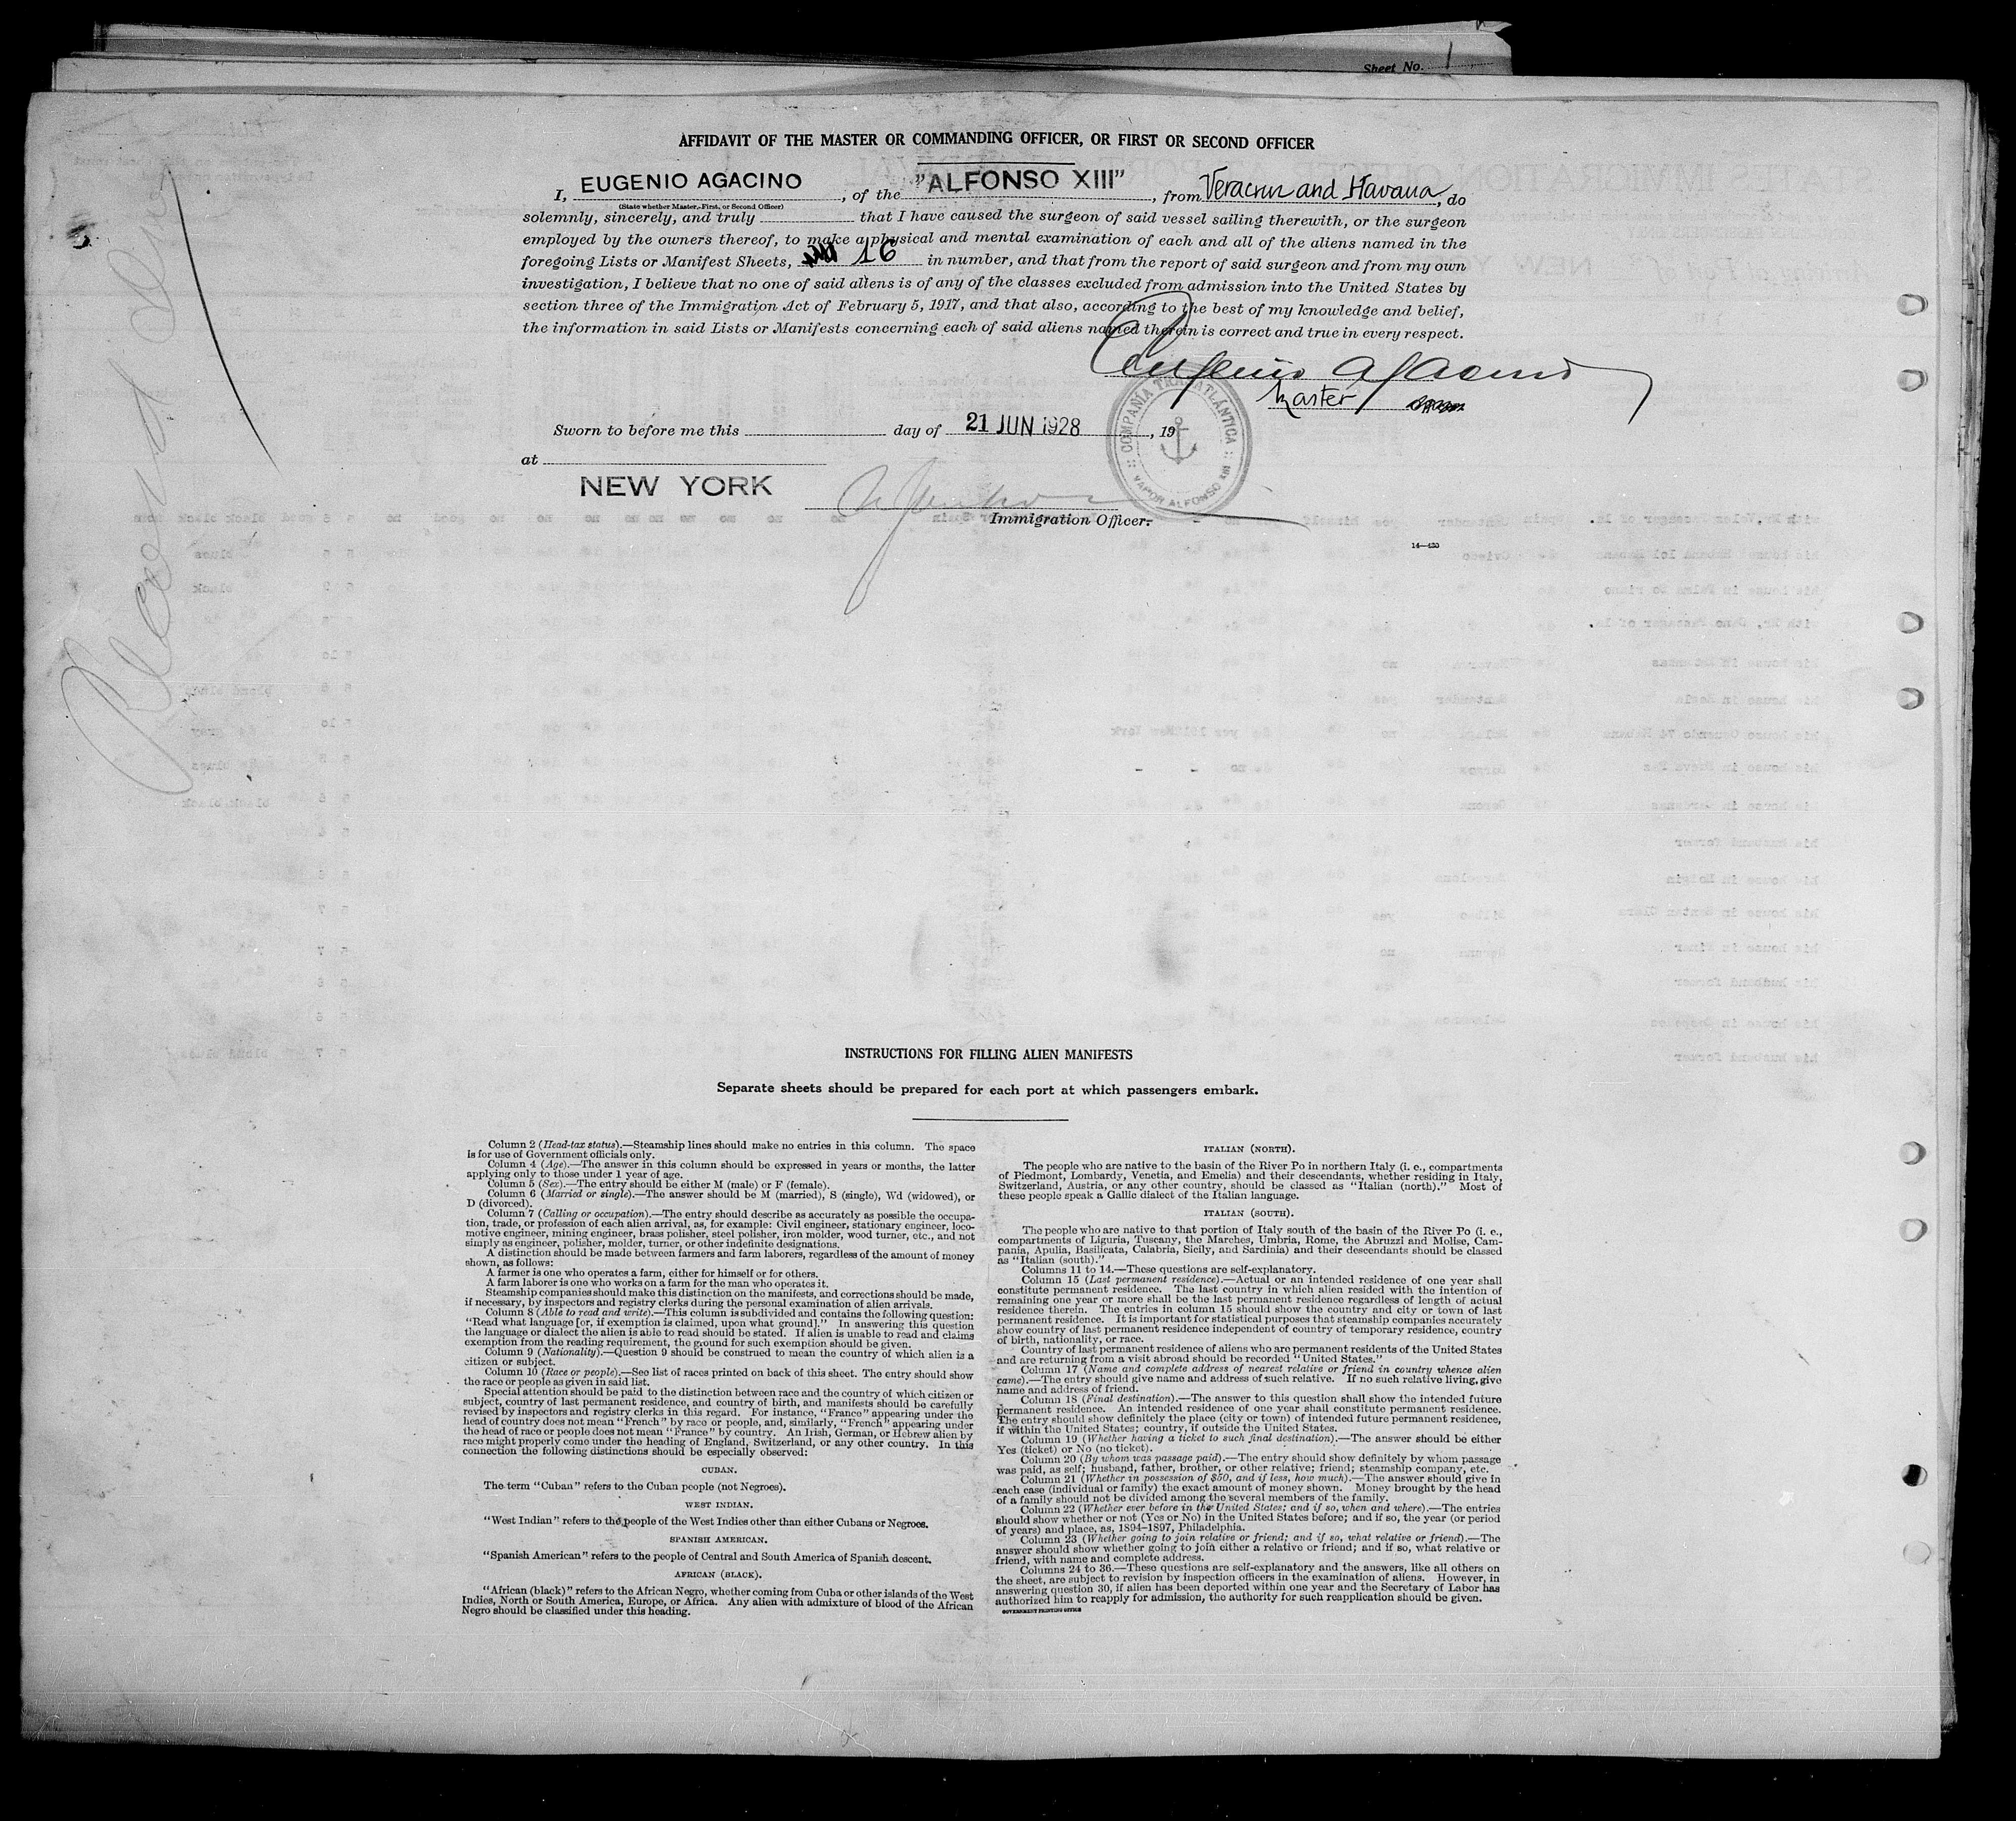 Sheet No. 1
AFFIDAVIT OF THE MASTER OR COMMANDING OFFICER, OR FIRST OR SECOND OFFICER
I, EUGENIO AGACINO, of the "ALFONSO XIII", from Veracruz and Havana, do
(State whether Master, First, or Second Officer)
solemnly, sincerely, and truly that I have caused the surgeon of said vessel sailing therewith, or the surgeon
employed by the owners thereof, to make a physical and mental examination of each and all of the aliens named in the
foregoing Lists or Manifest Sheets, 16 in number, and that from the report of said surgeon and from my own
investigation, I believe that no one of said aliens is of any of the classes excluded from admission into the United States by
section three of the Immigration Act of February 5, 1917, and that also, according to the best of my knowledge and belief,
the information in said Lists or Manifests concerning each of said aliens named therein is correct and true in every respect.
Eugenio Agacino
Master
Sworn to before me this day of 21 JUN 1928, 19
at
NEW YORK
COMPAÑIA TRASATLÁNTICA
VAPOR ALFONSO XIII
Immigration Officer.
14—430
INSTRUCTIONS FOR FILLING ALIEN MANIFESTS
Separate sheets should be prepared for each port at which passengers embark.
Column 2 (Head-tax status).—Steamship lines should make no entries in this column. The space
is for use of Government officials only.
Column 4 (Age).—The answer in this column should be expressed in years or months, the latter
applying only to those under 1 year of age.
Column 5 (Sex).—The entry should be either M (male) or F (female).
Column 6 (Married or single).—The answer should be M (married), S (single), Wd (widowed), or
D (divorced).
Column 7 (Calling or occupation).—The entry should describe as accurately as possible the occupa-
tion, trade, or profession of each alien arrival, as, for example: Civil engineer, stationary engineer, loco-
motive engineer, mining engineer, brass polisher, steel polisher, iron molder, wood turner, etc., and not
simply as engineer, polisher, molder, turner, or other indefinite designations.
A distinction should be made between farmers and farm laborers, regardless of the amount of money
shown, as follows:
A farmer is one who operates a farm, either for himself or for others.
A farm laborer is one who works on a farm for the man who operates it.
Steamship companies should make this distinction on the manifests, and corrections should be made,
if necessary, by inspectors and registry clerks during the personal examination of alien arrivals.
Column 8 (Able to read and write).—This column is subdivided and contains the following question:
"Read what language [or, if exemption is claimed, upon what ground]." In answering this question
the language or dialect the alien is able to read should be stated. If alien is unable to read and claims
exemption from the reading requirement, the ground for such exemption should be given.
Column 9 (Nationality).—Question 9 should be construed to mean the country of which alien is a
citizen or subject.
Column 10 (Race or people).—See list of races printed on back of this sheet. The entry should show
the race or people as given in said list.
Special attention should be paid to the distinction between race and the country of which citizen or
subject, country of last permanent residence, and country of birth, and manifests should be carefully
revised by inspectors and registry clerks in this regard. For instance, "France" appearing under the
head of country does not mean "French" by race or people, and, similarly, "French" appearing under
the head of race or people does not mean "France" by country. An Irish, German, or Hebrew alien by
race might properly come under the heading of England, Switzerland, or any other country. In this
connection the following distinctions should be especially observed:
CUBAN.
The term "Cuban" refers to the Cuban people (not Negroes).
WEST INDIAN.
"West Indian" refers to the people of the West Indies other than either Cubans or Negroes.
SPANISH AMERICAN.
"Spanish American" refers to the people of Central and South America of Spanish descent.
AFRICAN (BLACK).
"African (black)" refers to the African Negro, whether coming from Cuba or other islands of the West
Indies, North or South America, Europe, or Africa. Any alien with admixture of blood of the African
Negro should be classified under this heading.
ITALIAN (NORTH).
The people who are native to the basin of the River Po in northern Italy (i. e., compartments
of Piedmont, Lombardy, Venetia, and Emelia) and their descendants, whether residing in Italy,
Switzerland, Austria, or any other country, should be classed as "Italian (north)." Most of
these people speak a Gallic dialect of the Italian language.
ITALIAN (SOUTH).
The people who are native to that portion of Italy south of the basin of the River Po (i. e.,
compartments of Liguria, Tuscany, the Marches, Umbria, Rome, the Abruzzi and Molise, Cam-
pania, Apulia, Basilicata, Calabria, Sicily, and Sardinia) and their descendants should be classed
as "Italian (south)."
Columns 11 to 14.—These questions are self-explanatory.
Column 15 (Last permanent residence).—Actual or an intended residence of one year shall
constitute permanent residence. The last country in which alien resided with the intention of
remaining one year or more shall be the last permanent residence regardless of length of actual
residence therein. The entries in column 15 should show the country and city or town of last
permanent residence. It is important for statistical purposes that steamship companies accurately
show country of last permanent residence independent of country of temporary residence, country
of birth, nationality, or race.
Country of last permanent residence of aliens who are permanent residents of the United States
and are returning from a visit abroad should be recorded "United States."
Column 17 (Name and complete address of nearest relative or friend in country whence alien
came).—The entry should give name and address of such relative. If no such relative living, give
name and address of friend.
Column 18 (Final destination).—The answer to this question shall show the intended future
permanent residence. An intended residence of one year shall constitute permanent residence.
The entry should show definitely the place (city or town) of intended future permanent residence,
if within the United States; country, if outside the United States.
Column 19 (Whether having a ticket to such final destination).—The answer should be either
Yes (ticket) or No (no ticket).
Column 20 (By whom was passage paid).—The entry should show definitely by whom passage
was paid, as self; husband, father, brother, or other relative; friend; steamship company, etc.
Column 21 (Whether in possession of $50, and if less, how much).—The answer should give in
each case (individual or family) the exact amount of money shown. Money brought by the head
of a family should not be divided among the several members of the family.
Column 22 (Whether ever before in the United States; and if so, when and where).—The entries
should show whether or not (Yes or No) in the United States before; and if so, the year (or period
of years) and place, as, 1894–1897, Philadelphia.
Column 23 (Whether going to join relative or friend; and if so, what relative or friend).—The
answer should show whether going to join either a relative or friend; and if so, what relative or
friend, with name and complete address.
Columns 24 to 36.—These questions are self-explanatory and the answers, like all others on
the sheet, are subject to revision by inspection officers in the examination of aliens. However, in
answering question 30, if alien has been deported within one year and the Secretary of Labor has
authorized him to reapply for admission, the authority for such reapplication should be given.
GOVERNMENT PRINTING OFFICE